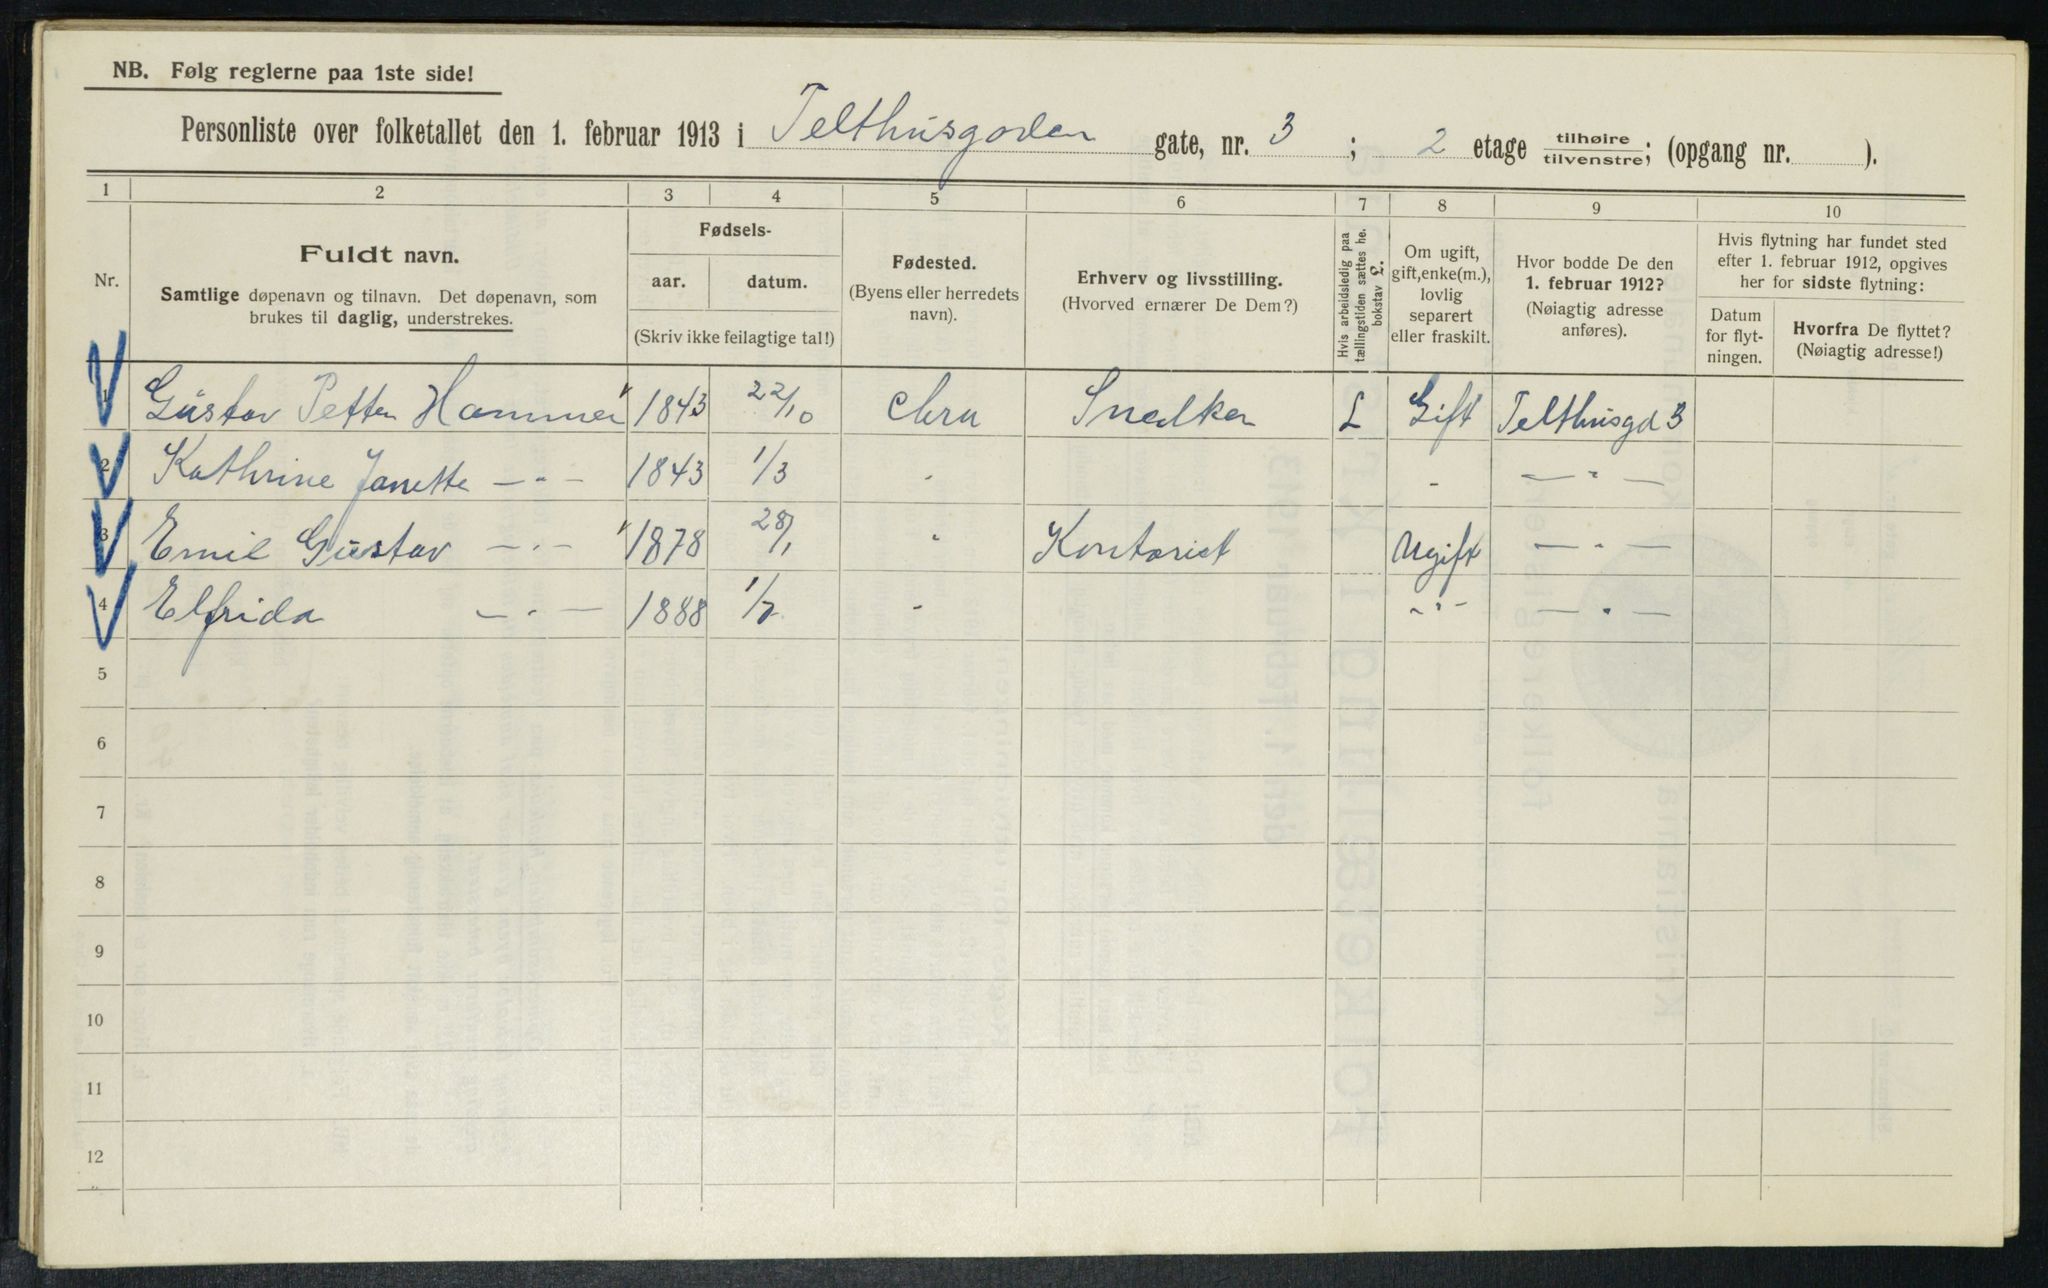 NB. Følg reglerne paa 1ste side!
Personliste over folketallet den 1. februar 1913 i Telthusgaden gate, nr. 3 ; 2 etage tilhøire tilvenstre; (opgang nr. ).
1 2 3 4 5 6 7 8 9 10
Nr.
Fuldt navn.
Samtlige døpenavn og tilnavn. Det døpenavn, som
brukes til daglig, understrekes.
Fødsels-
aar. datum.
(Skriv ikke feilagtige tal!)
Fødested.
(Byens eller herredets
navn).
Erhverv og livsstilling.
(Hvorved ernærer De Dem?)
Hvis arbeidsledig paa
tællingstiden sættes he.
bokstav L.
Om ugift,
gift,enke(m.),
lovlig
separert
eller fraskilt.
Hvor bodde De den
1. februar 1912?
(Nøiagtig adresse
anføres).
Hvis flytning har fundet sted
efter 1. februar 1912, opgives
her for sidste flytning:
Datum
for flyt-
ningen.
Hvorfra De flyttet?
(Nøiagtig adresse!)
1 Gustav Petter Hammer 1843 22/10 Chra Snedker L Gift Telthusgd 3
2 Kathrine Janette — " — 1843 1/3 " " — " —
3 Emil Gustav — " — 1878 28/1 " Kontorist Ugift — " —
4 Elfrida — " — 1888 " — " — — " —
5
6
7
8
9
10
11
12